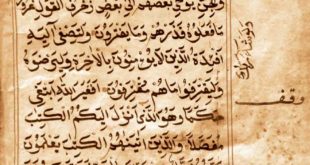 والجن يوحي بعضهم الى بعض زخرف القول غرورا
ولو شاء ربك
ما فعلوه فذرهم وما يفترون ولتصغى اليه
افئدة الذين لا يؤمنون بالاخرة وليرضوه
وليقترفوا ما هم مقترفون افغير الله ابتغي
وقف
حكما وهو الذي انزل اليكم الكتب
مفصلا والذين اتينهم الكتب يعلمون